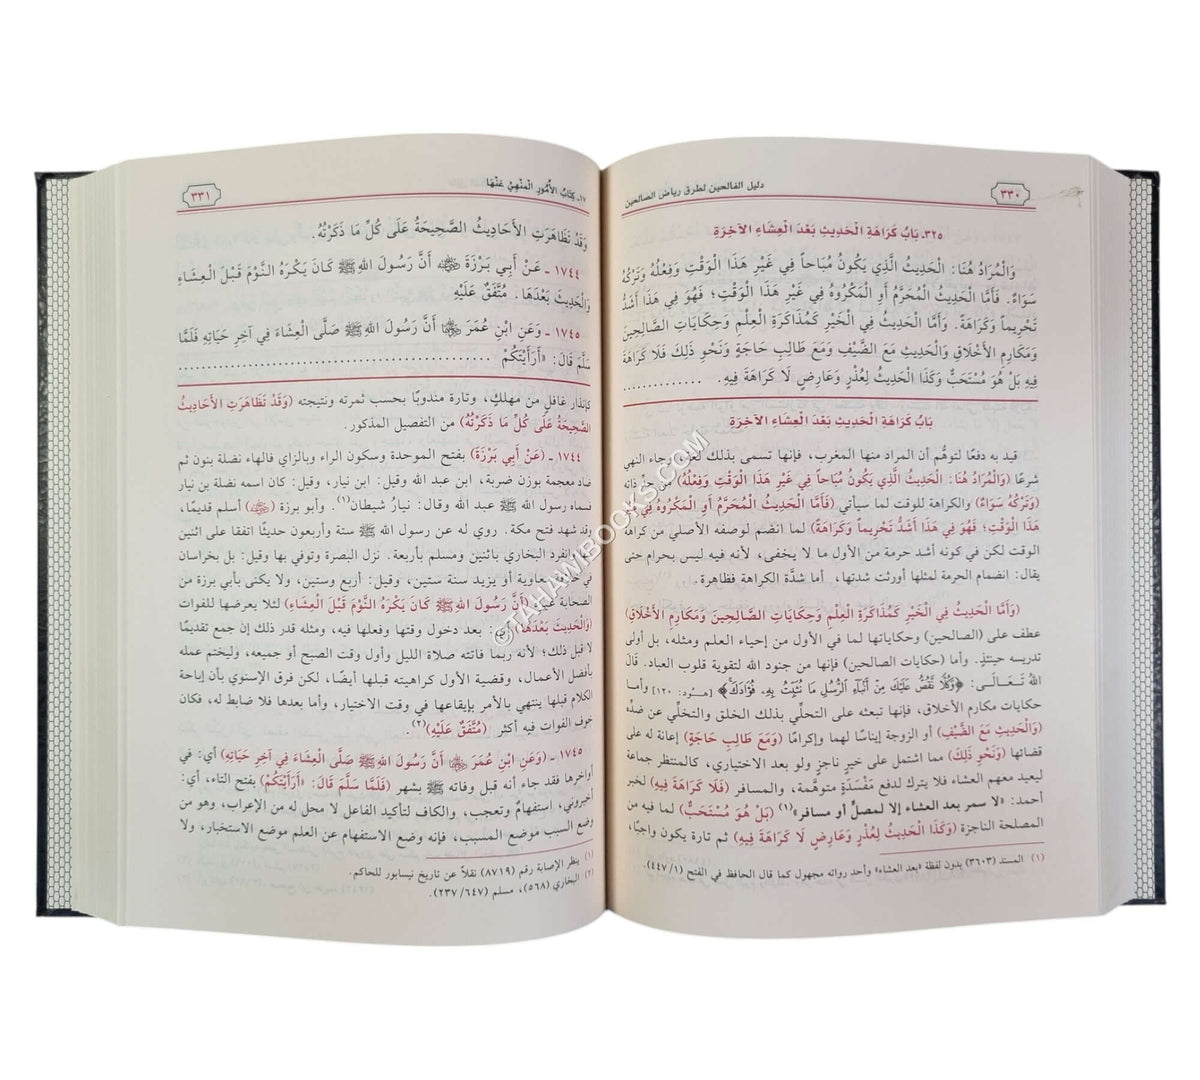 ٣٣٠
دليل الفالحين لطرق رياض الصالحين
٣٢٥ـ بَابُ كَرَاهَةِ الْحَدِيثِ بَعْدَ الْعِشَاءِ الآخِرَةِ
وَالْمُرَادُ هُنَا: الْحَدِيثُ الَّذِي يَكُونُ مُبَاحاً فِي غَيْرِ هَذَا الْوَقْتِ وَفِعْلُهُ وَتَرْكُهُ
سَوَاءٌ. فَأَمَّا الْحَدِيثُ الْمُحَرَّمُ أَوِ الْمَكْرُوهُ فِي غَيْرِ هَذَا الْوَقْتِ؛ فَهُوَ فِي هَذَا أَشَدُّ
تَحْرِيماً وَكَرَاهَةً. وَأَمَّا الْحَدِيثُ فِي الْخَيْرِ كَمُذَاكَرَةِ الْعِلْمِ وَحِكَايَاتِ الصَّالِحِينَ
وَمَكَارِمِ الأَخْلَاقِ وَالْحَدِيثِ مَعَ الضَّيْفِ وَمَعَ طَالِبِ حَاجَةٍ وَنَحْوِ ذَلِكَ فَلَا كَرَاهَةَ
فِيهِ بَلْ هُوَ مُسْتَحَبٌّ وَكَذَا الْحَدِيثُ لِعُذْرٍ وَعَارِضٍ لَا كَرَاهَةَ فِيهِ. ............
بَابُ كَرَاهَةِ الْحَدِيثِ بَعْدَ الْعِشَاءِ الآخِرَةِ
قيد به دفعًا لتوهُّم أن المراد منها المغرب، فإنها تسمى بذلك لغة، وجاء النهي
شرعًا (وَالْمُرَادُ هُنَا: الْحَدِيثُ الَّذِي يَكُونُ مُبَاحاً فِي غَيْرِ هَذَا الْوَقْتِ وَفِعْلُهُ) من حيث ذاته
(وَتَرْكُهُ سَوَاءٌ) والكراهة للوقت لما سيأتي (فَأَمَّا الْحَدِيثُ الْمُحَرَّمُ أَوِ الْمَكْرُوهُ فِي غَيْرِ
هَذَا الْوَقْتِ؛ فَهُوَ فِي هَذَا أَشَدُّ تَحْرِيماً وَكَرَاهَةً) لما انضم لوصفه الأصلي من كراهة
الوقت لكن في كونه أشد حرمة من الأول ما لا يخفى، لأنه فيه ليس بحرام حتى
يقال: انضمام الحرمة لمثلها أورثت شدتها، أما شدَّة الكراهة فظاهرة.
(وَأَمَّا الْحَدِيثُ فِي الْخَيْرِ كَمُذَاكَرَةِ الْعِلْمِ وَحِكَايَاتِ الصَّالِحِينَ وَمَكَارِمِ الأَخْلَاقِ)
عطف على (الصالحين) وحكاياتها لما في الأول من إحياء العلم ومثله، بل أولى
تدريسه حينئذٍ. وأما (حكايات الصالحين) فإنها من جنود الله لتقوية قلوب العباد. قَالَ
اللهُ تَعَالَى: ﴿وَكُلًّا نَّقُصُّ عَلَيْكَ مِنْ أَنْبَاءِ الرُّسُلِ مَا نُثَبِّتُ بِهِ فُؤَادَكَ﴾ [هود: ١٢٠] وأما
حكايات مكارم الأخلاق، فإنها تبعثه على التحلِّي بذلك الخلق والتخلِّي عن ضدِّه
(وَالْحَدِيثِ مَعَ الضَّيْفِ) أو الزوجة إيناسًا لهما وإكرامًا (وَمَعَ طَالِبِ حَاجَةٍ) إعانة له على
قضائها (وَنَحْوِ ذَلِكَ) مما اشتمل على خيرٍ ناجزٍ ولو بعد الاختياري، كالمنتظر جماعة
ليعيد معهم العشاء فلا يترك لدفع مَفْسَدَةٍ متوهَّمة، والمسافر (فَلَا كَرَاهَةَ فِيهِ) لخبر
أحمد: «لا سمر بعد العشاء إلا لمصلٍّ أو مسافر»(١) (بَلْ هُوَ مُسْتَحَبٌّ) لما فيه من
المصلحة الناجزة (وَكَذَا الْحَدِيثُ لِعُذْرٍ وَعَارِضٍ لَا كَرَاهَةَ فِيهِ) ثم تارة يكون واجبًا،
(١) المسند (٣٦٠٣) بدون لفظة «بعد العشاء» وأحد رواته مجهول كما قال الحافظ في الفتح (٤٤٧/١)
١٧ـ كِتَابُ الأُمُورِ الْمَنْهِيِّ عَنْهَا
٣٣١
وَقَدْ تَظَاهَرَتِ الأَحَادِيثُ الصَّحِيحَةُ عَلَى كُلِّ مَا ذَكَرْتُهُ.
١٧٤٤ ـ عَنْ أَبِي بَرْزَةَ ﷺ أَنَّ رَسُولَ اللهِ ﷺ كَانَ يَكْرَهُ النَّوْمَ قَبْلَ الْعِشَاءِ
وَالْحَدِيثَ بَعْدَهَا. مُتَّفَقٌ عَلَيْهِ
١٧٤٥ ـ وَعَنِ ابْنِ عُمَرَ أَنَّ رَسُولَ اللهِ ﷺ صَلَّى الْعِشَاءَ فِي آخِرِ حَيَاتِهِ فَلَمَّا
سَلَّمَ قَالَ: «أَرَأَيْتَكُمْ ............
كإنذار غافلٍ من مهلك، وتارة مندوبًا بحسب ثمرته ونتيجته (وَقَدْ تَظَاهَرَتِ الأَحَادِيثُ
الصَّحِيحَةُ عَلَى كُلِّ مَا ذَكَرْتُهُ) من التفصيل المذكور.
١٧٤٤ ـ (عَنْ أَبِي بَرْزَةَ) بفتح الموحدة وسكون الراء وبالزاي فالهاء نضلة بنون ثم
ضاد معجمة بوزن ضربة، ابن عبد الله وقيل: ابن نيار، وقيل: كان اسمه نضلة بن نيار
فسماه رسول الله ﷺ عبد الله وقال: نيارُ شيطان(١). وأبو برزة أسلم قديمًا،
وقد شهد فتح مكة. روي له عن رسول الله ﷺ ستة وأربعون حديثًا اتفقا على اثنين
وانفرد البخاري باثنين ومسلم بأربعة. نزل البصرة وتوفي بها وقيل: بل بخراسان
في معاوية أو يزيد سنة ستين، وقيل: أربع وستين، ولا يكنى بأبي برزة من
الصحابة غيره (أَنَّ رَسُولَ اللهِ ﷺ كَانَ يَكْرَهُ النَّوْمَ قَبْلَ الْعِشَاءِ) لئلا يعرضها للفوات
(وَالْحَدِيثَ بَعْدَهَا) بعد دخول وقتها وفعلها فيه، ومثله قدر ذلك إن جمع تقديمًا
لا قبل ذلك؛ لأنه ربما فاتته صلاة الليل وأول وقت الصبح أو جميعه، وليختم عمله
بأفضل الأعمال، وقضية الأول كراهيته قبلها أيضًا، لكن فرق الإسنوي بأن إباحة
الكلام قبلها ينتهي بالأمر بإيقاعها في وقت الاختيار، وأما بعدها فلا ضابط له، فكان
خوف الفوات فيه أكثر (مُتَّفَقٌ عَلَيْهِ)(٢)
١٧٤٥ ـ (وَعَنِ ابْنِ عُمَرَ أَنَّ رَسُولَ اللهِ ﷺ صَلَّى الْعِشَاءَ فِي آخِرِ حَيَاتِهِ) أي: في
أواخرها فقد جاء أنه قبل وفاته ﷺ بشهر (فَلَمَّا سَلَّمَ قَالَ: «أَرَأَيْتَكُمْ) بفتح التاء، أي:
أخبروني، استفهامٌ وتعجب، والكاف لتأكيد الفاعل لا محل له من الإعراب، وهو من
وضع السبب موضع المسبب، فإنه وضع الاستفهام عن العلم موضع الاستخبار، ولا
(١) ينظر الإصابة رقم (٨٧١٩) نقلاً عن تاريخ نيسابور للحاكم.
(٢) البخاري (٥٦٨)، مسلم (٢٣٧/٦٤٧).
©TAHAWIBOOKS.COM